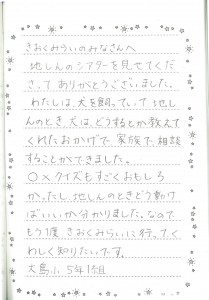 きおくみらいのみなさんへ
地しんのシアターを見せてくだ
さってありがとうございました。
わたしは、犬を飼っていて地し
んのとき犬は、どうするとか教えて
くれたおかげで、家族で、相談
することができました。
〇×クイズもすごくおもしろ
かったし、地しんのときどう動け
ばいいか分かりました。なので
もう1度きおくみらいに行ってく
わしく知りたいです。
大島小5年1組